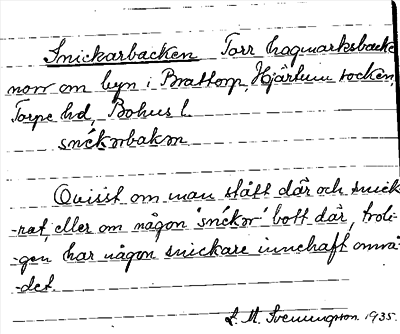 Snickarbacken Torr hagmarksback
norr om byn i Brattorp, Hjärtum socken,
Torpe hd, Bohus l.
snékorbakm
Ovisst om man stått där och snick
-rat, eller om någon 'snékor' bott där, troli-
-gen har någon snickare innehaft områ-
-det.
L. M. Svenungson. 1935.